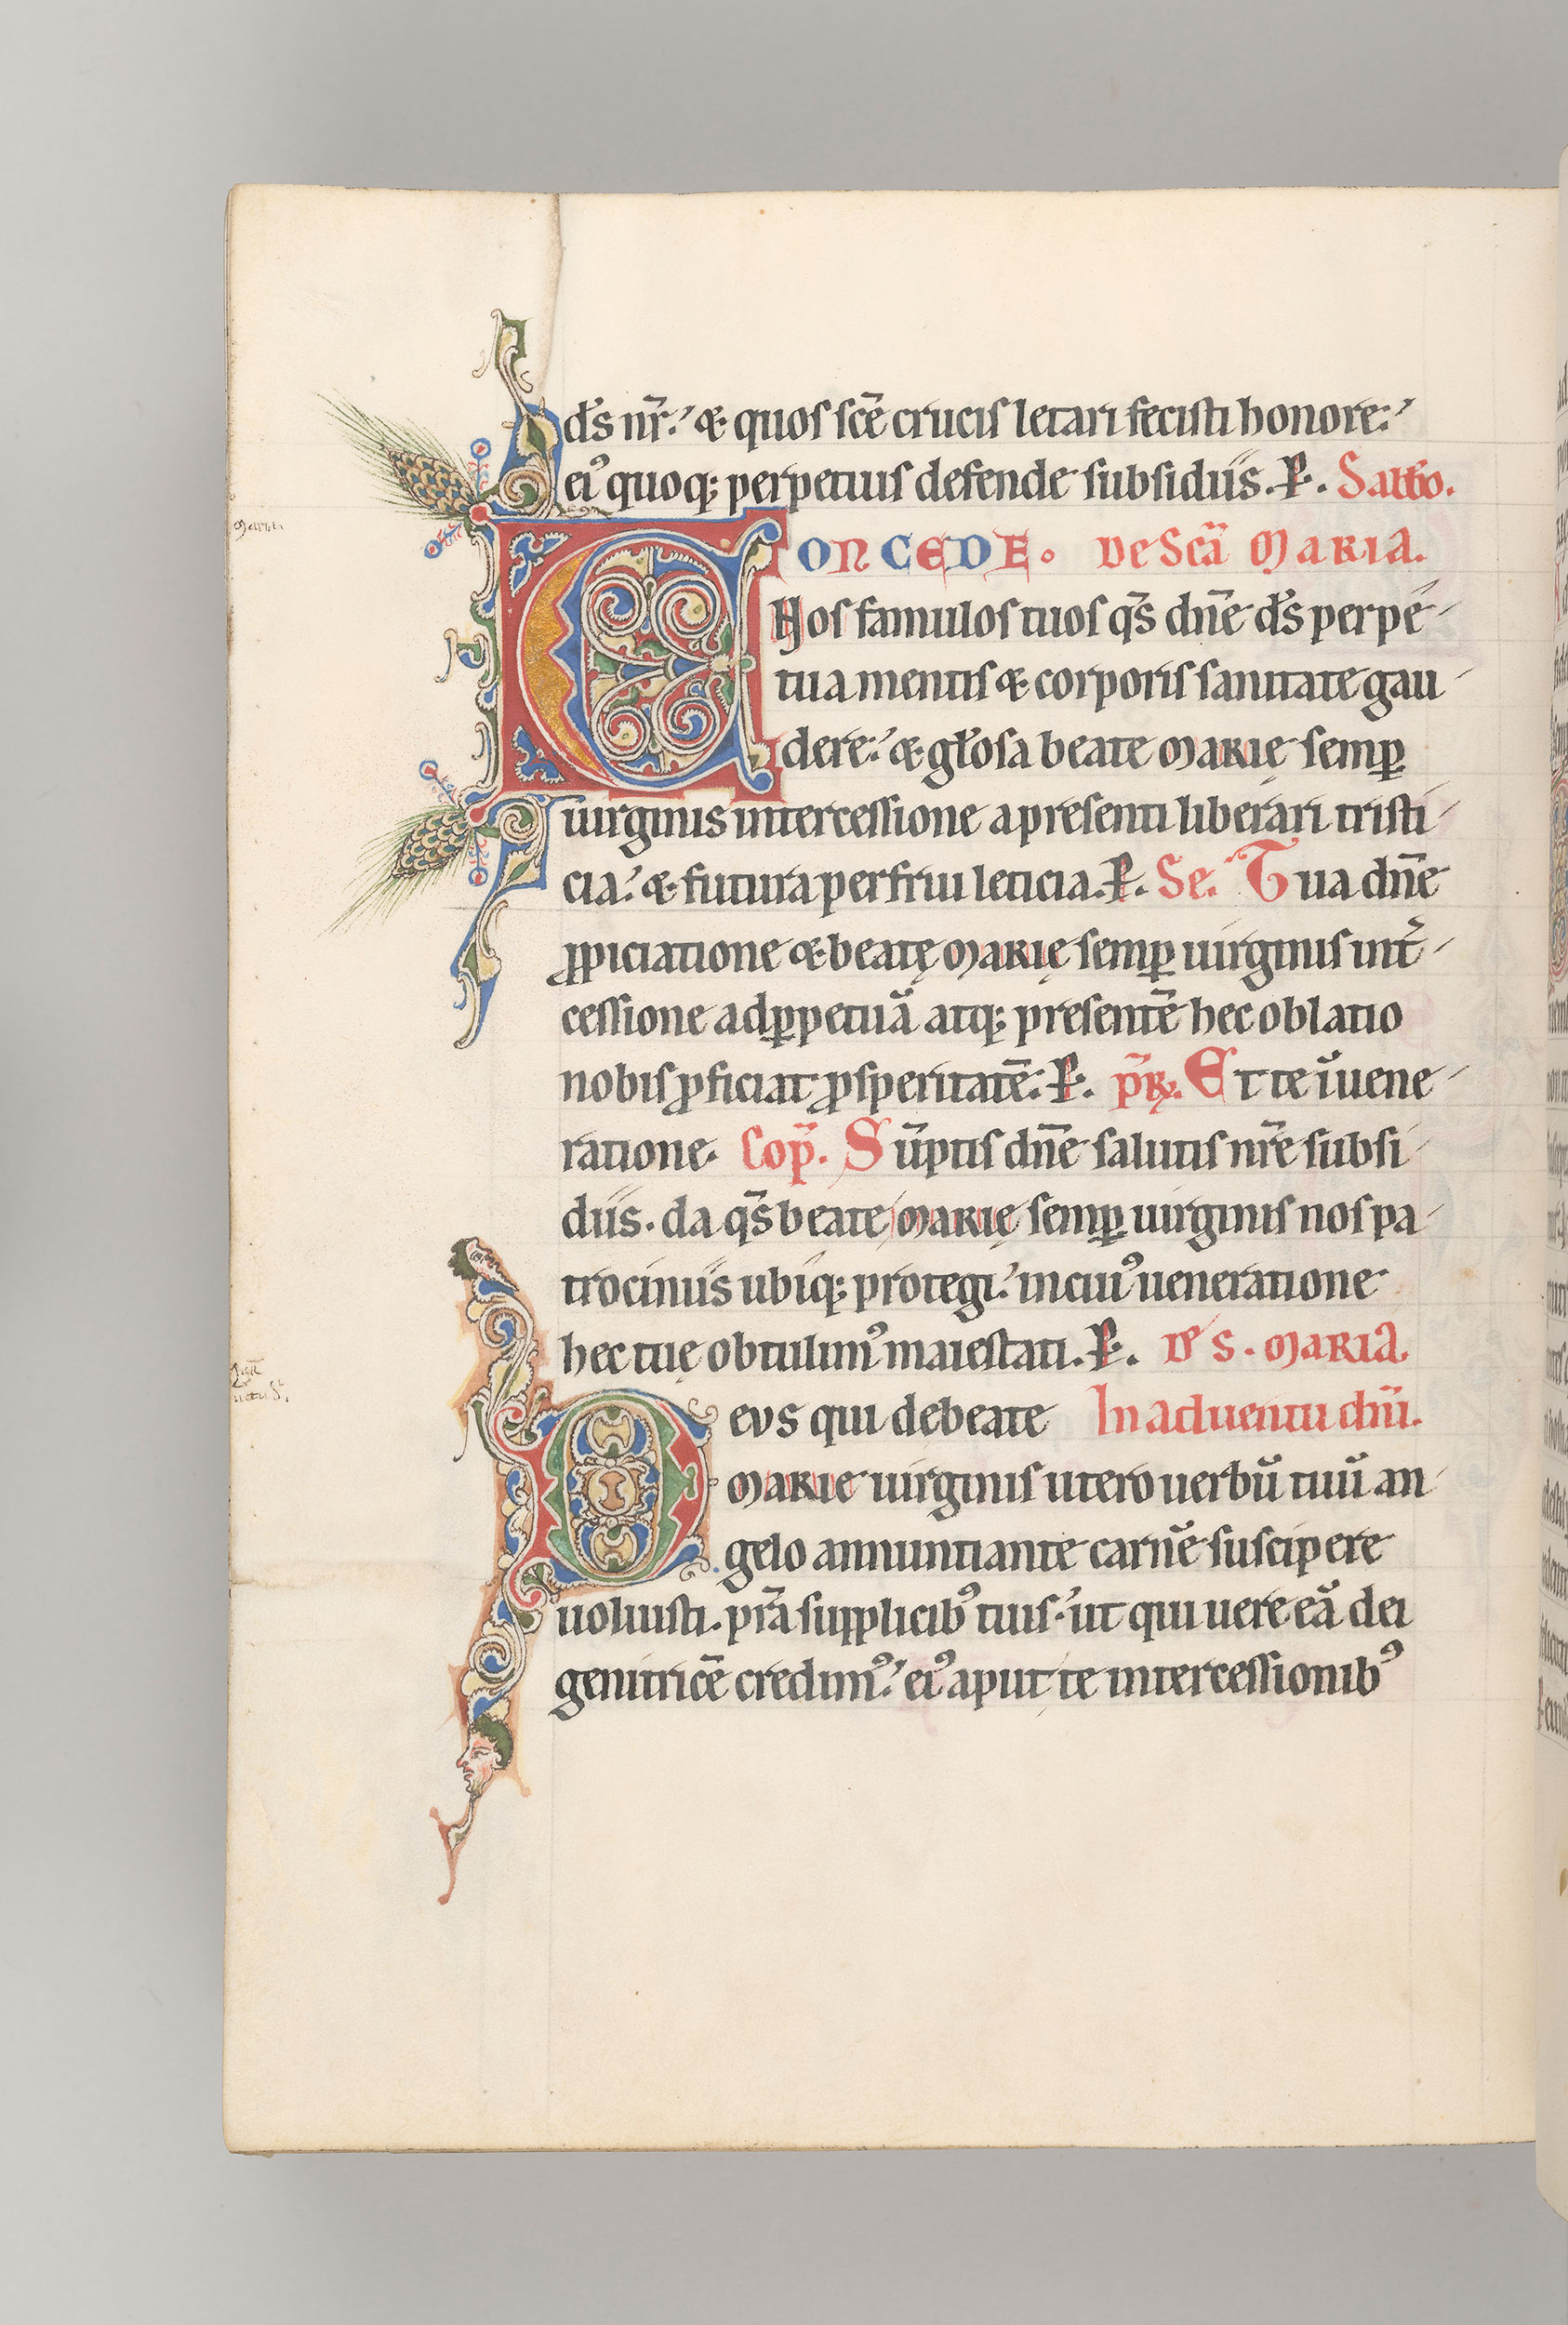 d̄s nr̄: & quos sc̄e crucis letari fecisti honore:
ei⁹ quoq; perpetuis defende subsidiis. P. Sabb̄o.
CONCEDE. De Sc̄a Maria.
Nos famulos tuos qs̄ dn̄e d̄s perpe-
tua mentis & corporis sanitate gau-
dere: & gl̄osa beate Marię semꝑ
uirginis intercessione a presenti liberari tristi-
cia: & futura perfrui leticia. P. Se. Tua dn̄e
ꝓpiciatione & beatę Marię semꝑ uirginis int̄-
cessione ad ꝑpetuā atq; presentē hec oblatio
nobis ꝓficiat ꝓsperitatē. P. p̄R. Et te ī uene-
ratione. Cop̄. Sūptis dn̄e salutis nr̄e subsi-
diis. da qs̄ beate Marię semꝑ uirginis nos pa-
trociniis ubiq; protegi: in cui⁹ ueneratione
hec tuę obtulim⁹ maiestati. P. De S. Maria
Deus qui de beate In aduentu dn̄i.
Marie uirginis utero uerbū tuū an-
gelo annuntiante carnē suscipere
uoluisti. pr̄a supplicib⁹ tuis: ut qui uere eā dei
genitricē credim⁹: ei⁹ aput te intercessionib⁹
maria